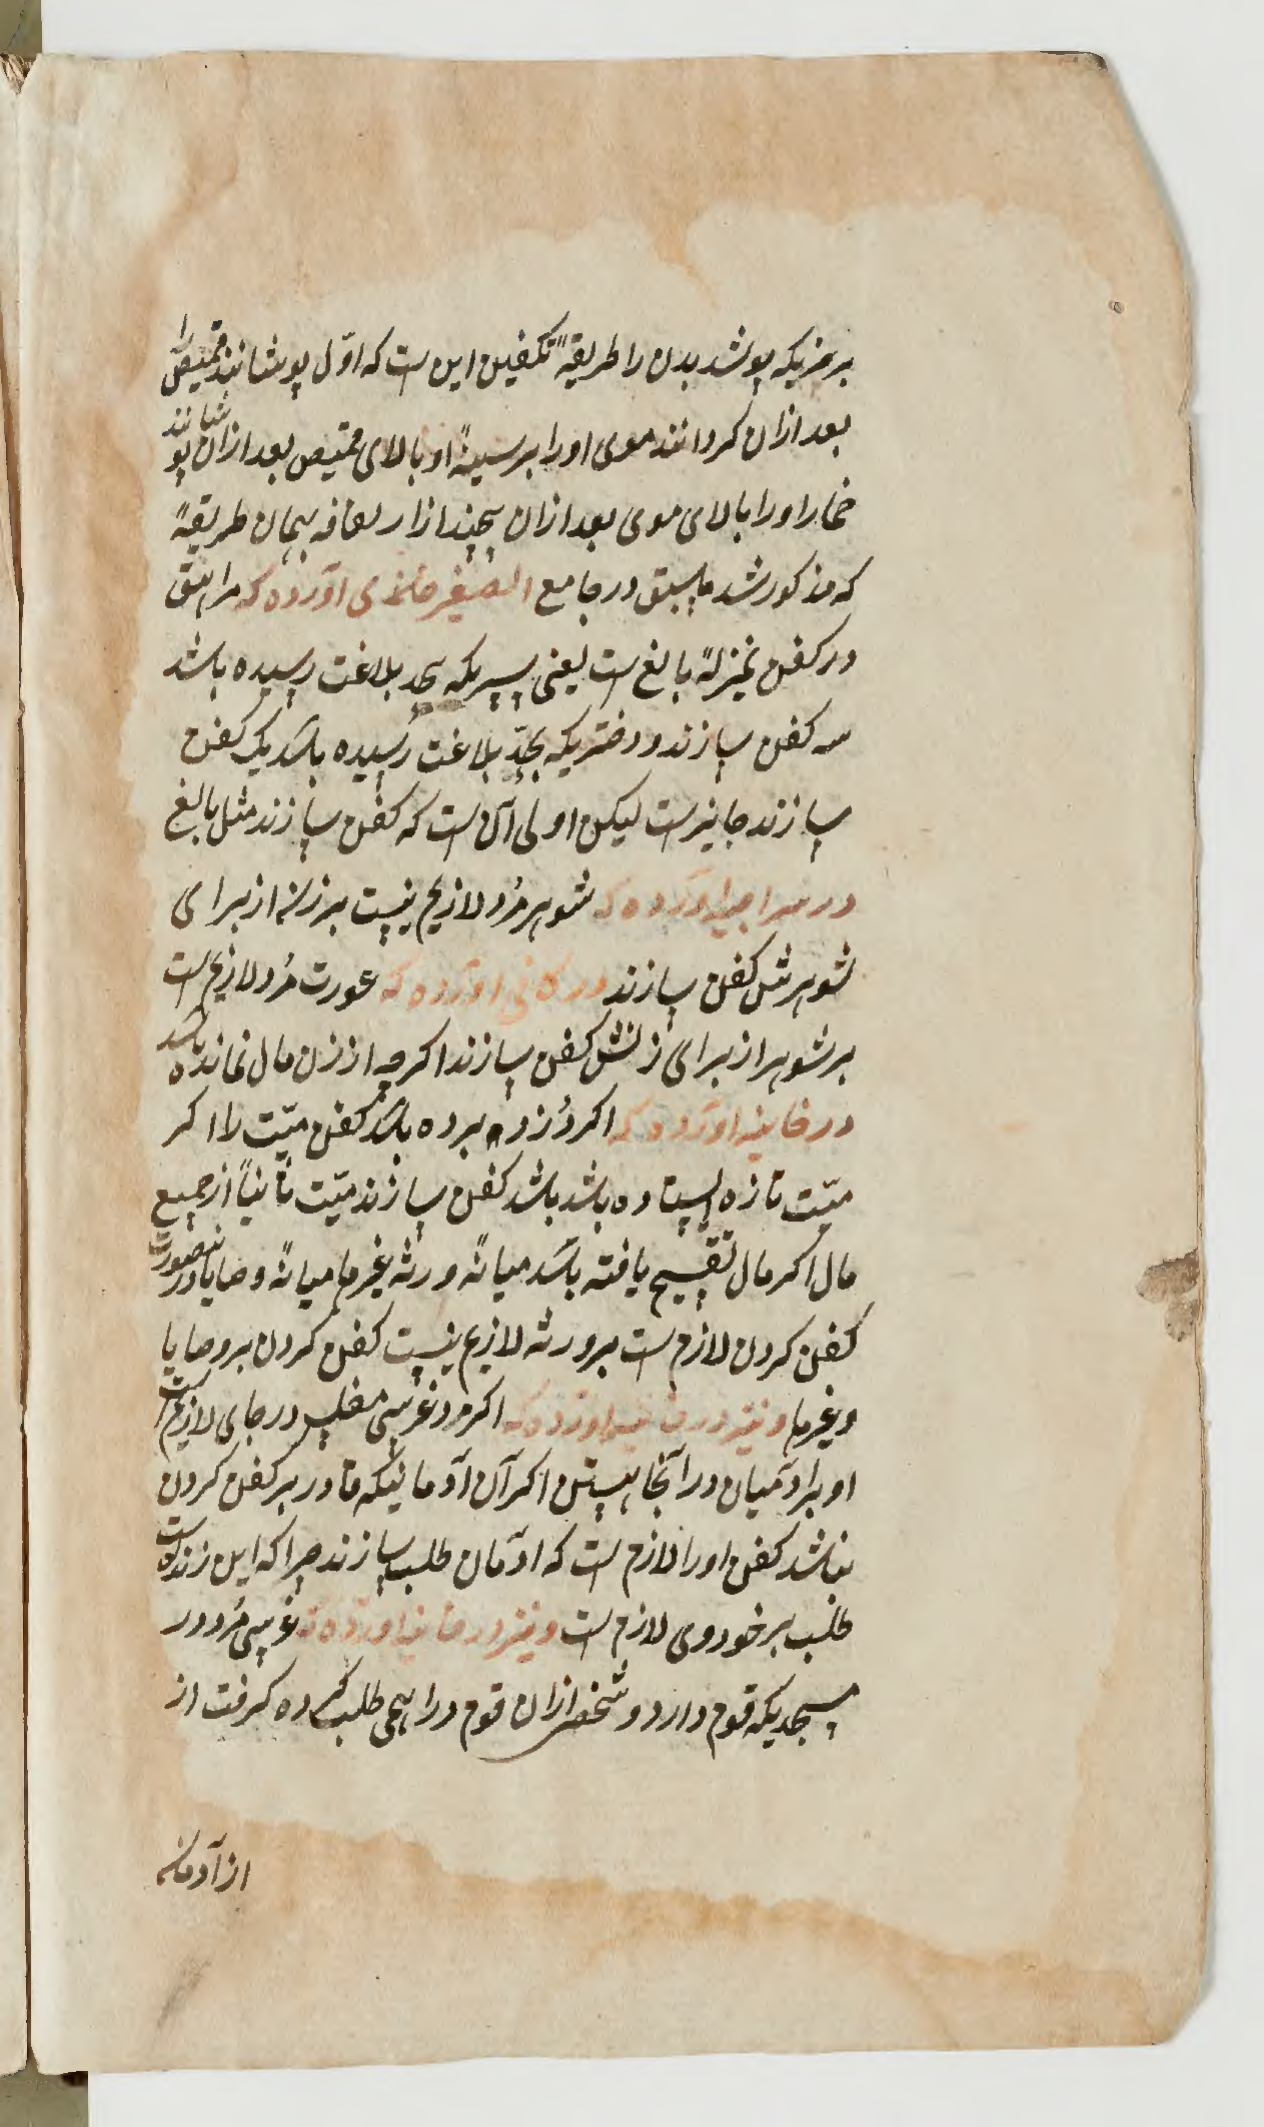 بر چیزیکه پوشد بدن را طریقهٔ تکفین این است که اوّل پوشانند قمیص را
بعد ازان کردانند موی او را بر سینهٔ او بالای قمیص بعد ازان پوشانند
خمار او را بالای موی بعد ازان پیچند ازار لفافه بهمان طریقهٔ
که مذکور شد ماسبق در جامع الصغیر خانی آورده که مراهق
در کفن بمنزلهٔ بالغ است یعنی پسریکه بحد بلاغت رسیده باشد
سه کفن سازند و دختریکه بحدّ بلاغت رسیده باشد یک کفن
سازند جایز است لیکن اولی آن است که کفن سازند مثل بالغ
در سراجیه آورده که شوهر مُرد لازم نیست بر زن از برای
شوهرش کفن سازند در کافی آورده که عورت مُرد لازم است
بر شوهر از برای زنش کفن سازند اکرچه از زن مال نمانده باشد
در خانیه آورده که اکر دُزد برده باشد کفن میّت را اکر
میّت تازه ایستاده باشد باشد کفن سازند میّت ثانیاً از جمیع
مال اکر مال تقسیم یافته باشد میانهٔ ورثه غرما میانهٔ وصایا در ینصورت
کفن کردن لازم است بر ورثه لازم نیست کفن کردن بر وصایا
و غرما و نیز در خانیه آورده که اکر مرد غریبی مفلس در جای لازم است
او بر آدمیان در آنجا هستن اکر آن آدمانیکه قادر بر کفن کردن
نباشد کفن او را لازم است که آدمان طلب سازند چراکه این زنده است
طلب بر خود وی لازم است و نیز در خانیه آورده که غریبی مُرد در
مسجدیکه قوم دارد و شخصی ازان قوم دراهمی طلب کرده کرفت از
از آدمان